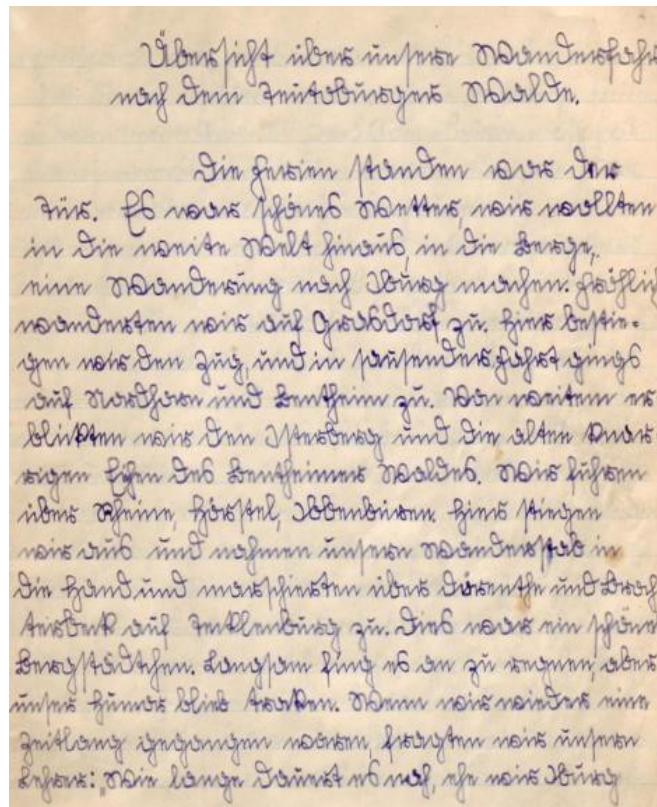 Übersicht über unsere Wanderfahr
nach dem Teutoburger Walde.
Die Ferien standen vor der
Tür. Es war schönes Wetter, wir wollten
in die weite Welt hinaus, in die Berge,
eine Wanderung nach Iburg machen. Fröhlich
wanderten wir auf Grasdorf zu. Hier bestie-
gen wir den Zug, und in sausender Fahrt gings
auf Nordhorn und Bentheim zu. Von weitem er
blickten wir den Isterberg und die alten knor
rigen Eichen des Bentheimer Waldes. Wir fuhren
über Rheine, Hörstel, Ibbenbüren. Hier stiegen
wir aus und nahmen unsern Wanderstab in
die Hand und marschierten über Dörenthe und Broch
terbeck auf Tecklenburg zu. Dies war ein schöne
Bergstädtchen. Langsam fing es an zu regnen, aber
unser Humor blieb trocken. Wenn wir wieder eine
Zeitlang gegangen waren, fragten wir unsern
Lehrer: „Wie lange dauert es noch, ehe wir Iburg